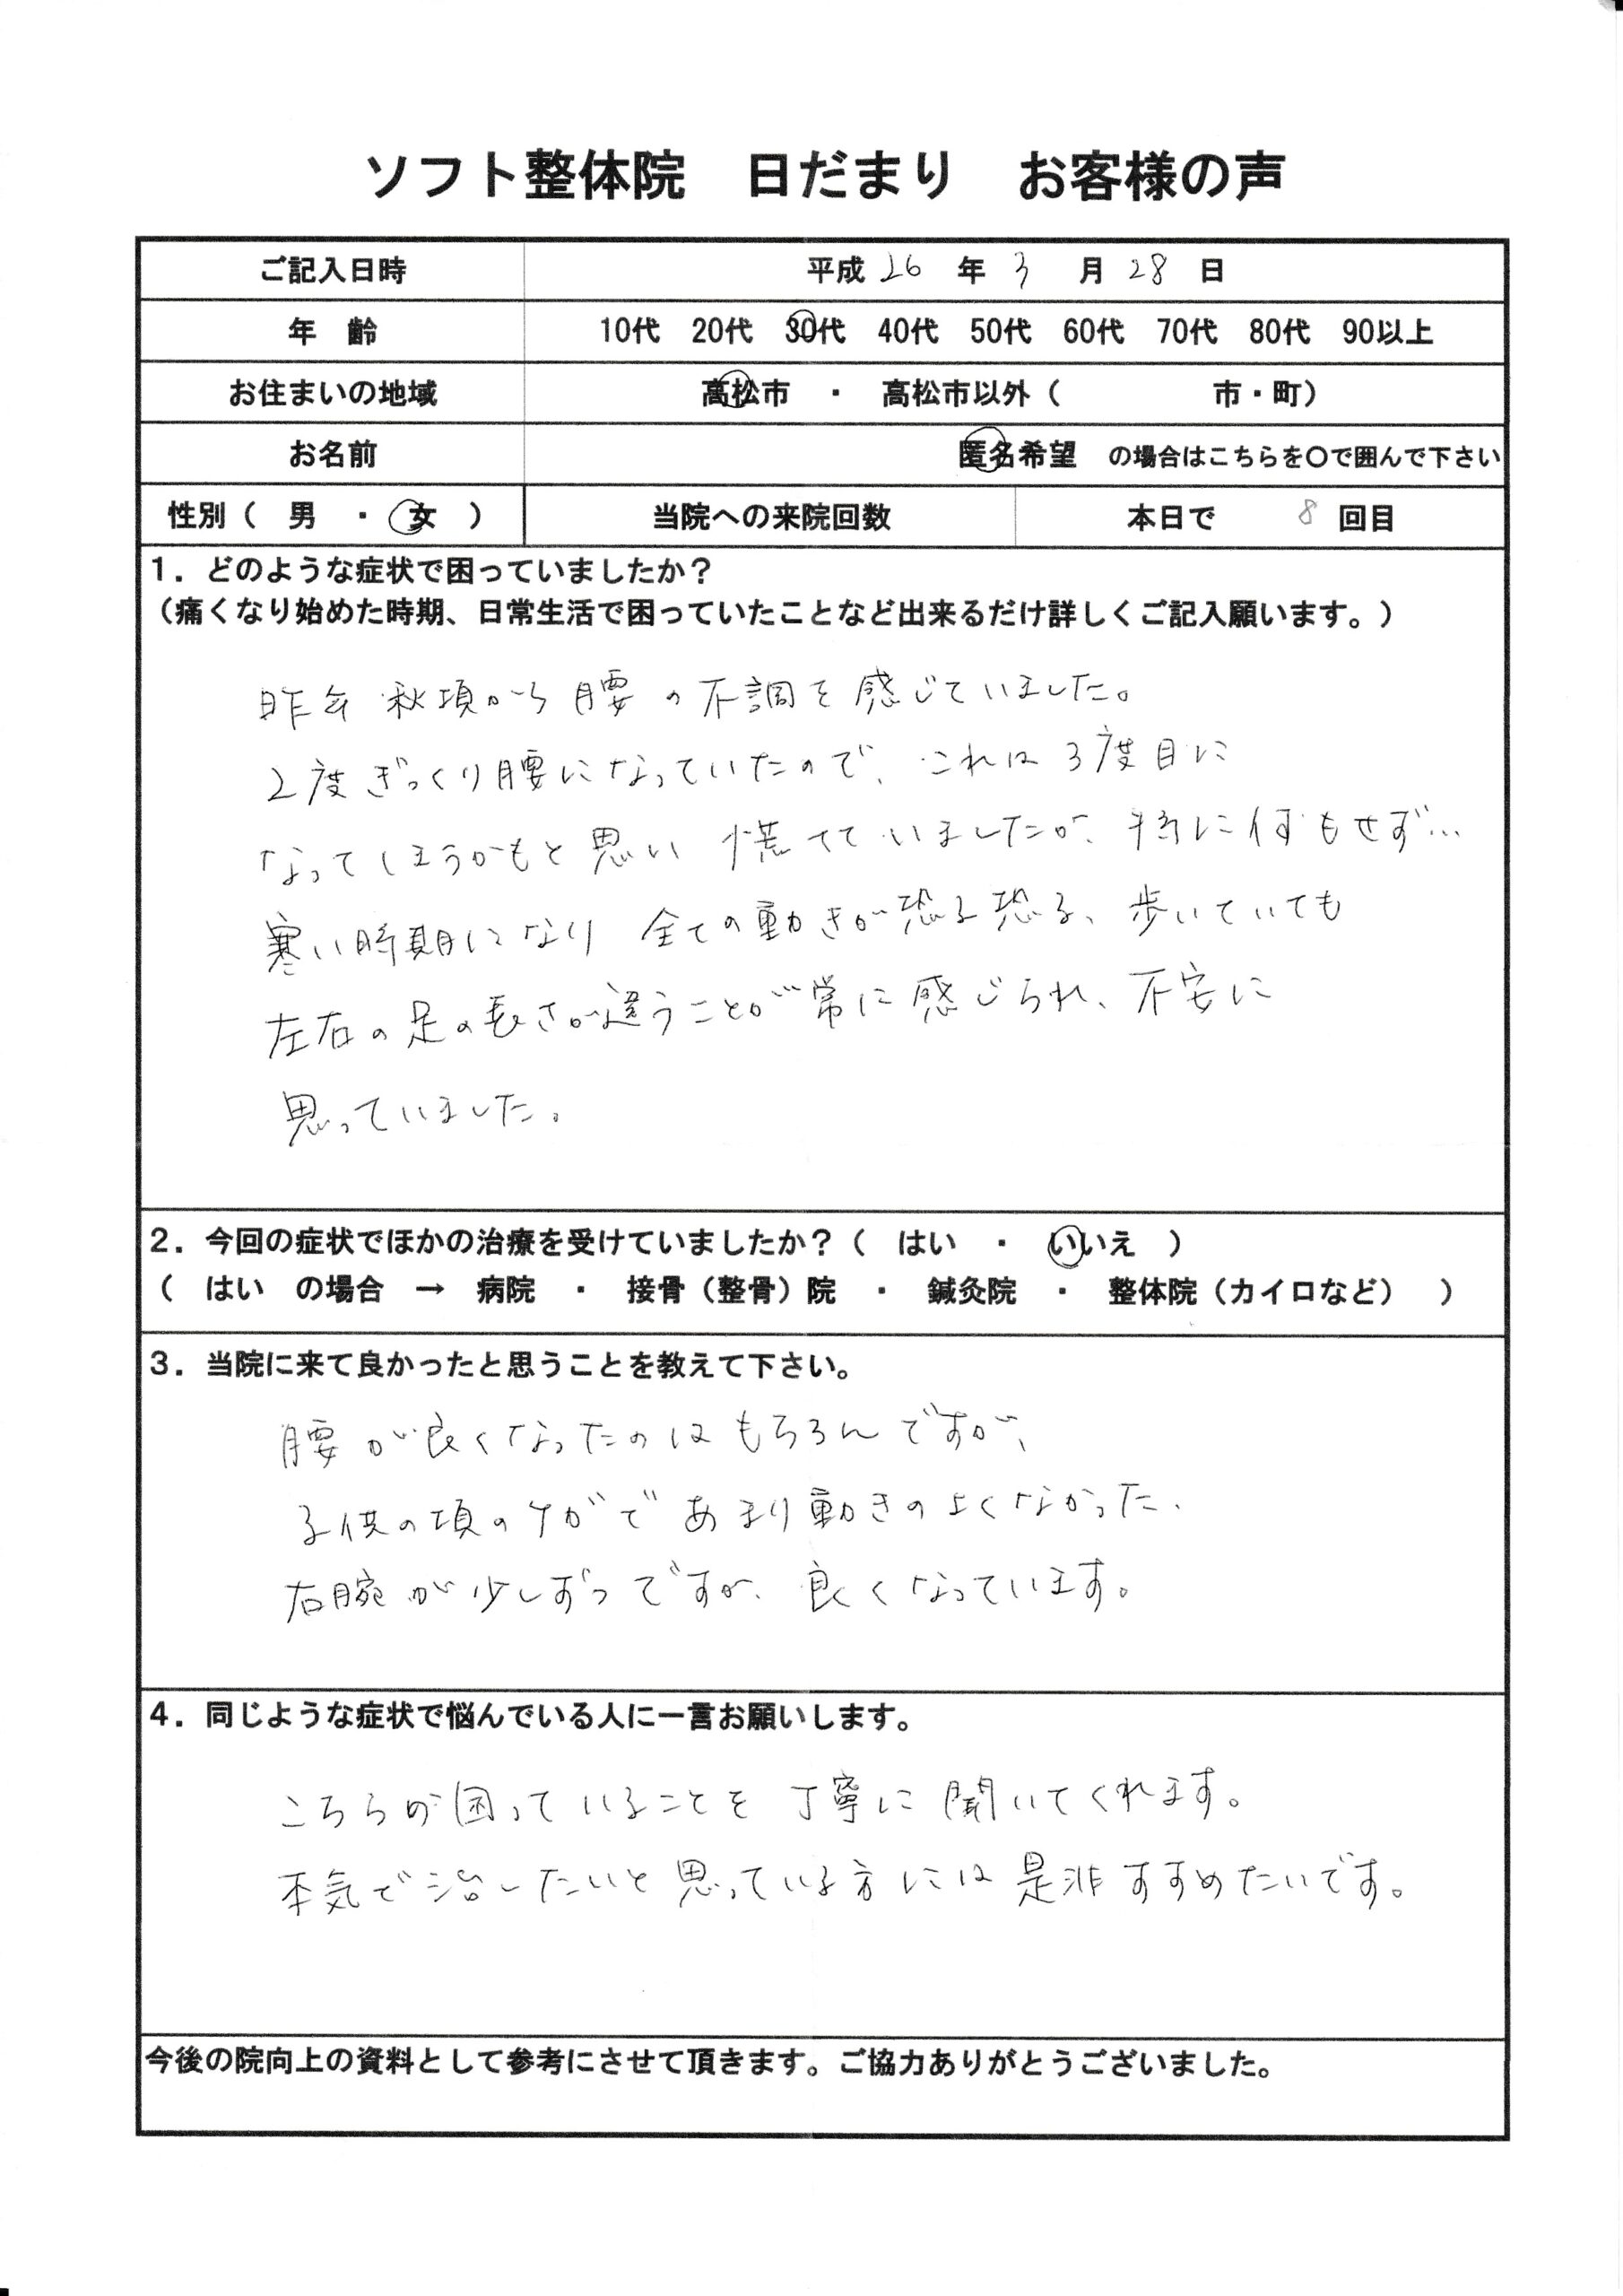 ソフト整体院　日だまり　お客様の声
ご記入日時　平成 26 年 3 月 28 日
年　齢　10代　20代　30代　40代　50代　60代　70代　80代　90以上
お住まいの地域　高松市　・　高松市以外（　　　　　市・町）
お名前　匿名希望　の場合はこちらを〇で囲んで下さい
性別（　男　・　女　）　当院への来院回数　本日で　8　回目
1．どのような症状で困っていましたか？
（痛くなり始めた時期、日常生活で困っていたことなど出来るだけ詳しくご記入願います。）
昨年 秋頃から 腰の不調を感じていました。
2度ぎっくり腰になっていたので、これは3度目に
なってしまうかもと思い 慌てていましたが、特に何もせず…
寒い時期になり 全ての動きが恐る恐る、歩いていても
左右の足の長さが違うことが常に感じられ、不安に
思っていました。
2．今回の症状でほかの治療を受けていましたか？（　はい　・　いいえ　）
（　はい　の場合　→　病院　・　接骨（整骨）院　・　鍼灸院　・　整体院（カイロなど）　）
3．当院に来て良かったと思うことを教えて下さい。
腰が良くなったのはもちろんですが、
子供の頃のケガであまり動きのよくなかった、
右腕が少しずつですが、良くなっています。
4．同じような症状で悩んでいる人に一言お願いします。
こちらが困っていることを丁寧に聞いてくれます。
本気で治したいと思っている方には是非すすめたいです。
今後の院向上の資料として参考にさせて頂きます。ご協力ありがとうございました。